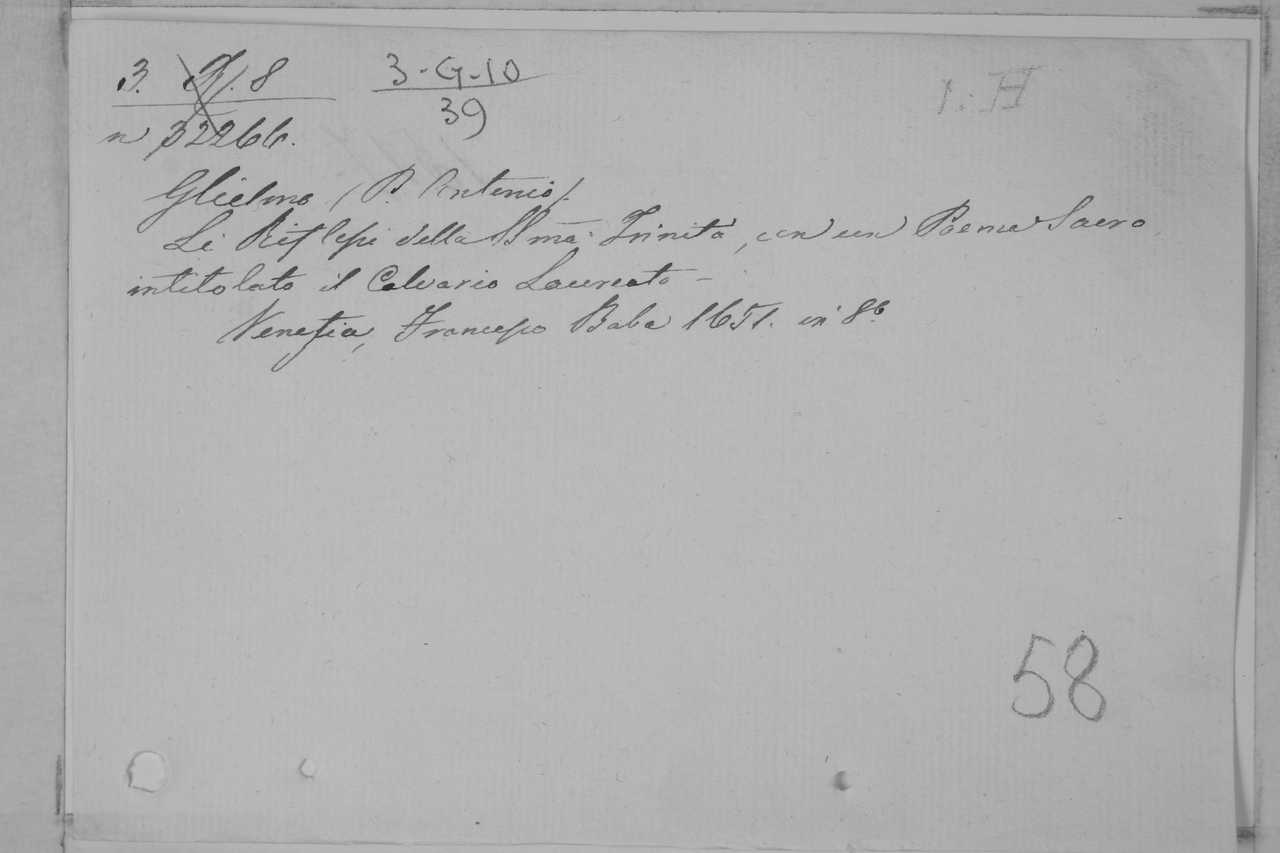 3. F. 8
3-G-10
39
I. H
n 32266.
Glielmo (P. Antonio).
Li Riflessi della SSma. Trinità, con un Poema Sacro
intitolato il Calvario Laureato -
Venezia, Francesco Baba 1651. in 8º
58